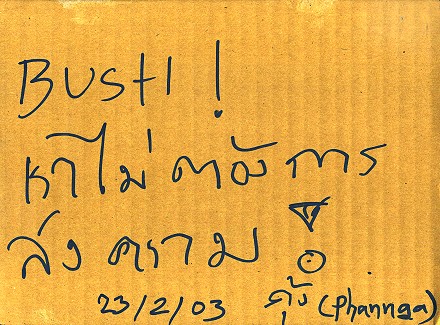 BUSH !
เราไม่ต้องการ
สงคราม !
23/2/03 (Phannga)